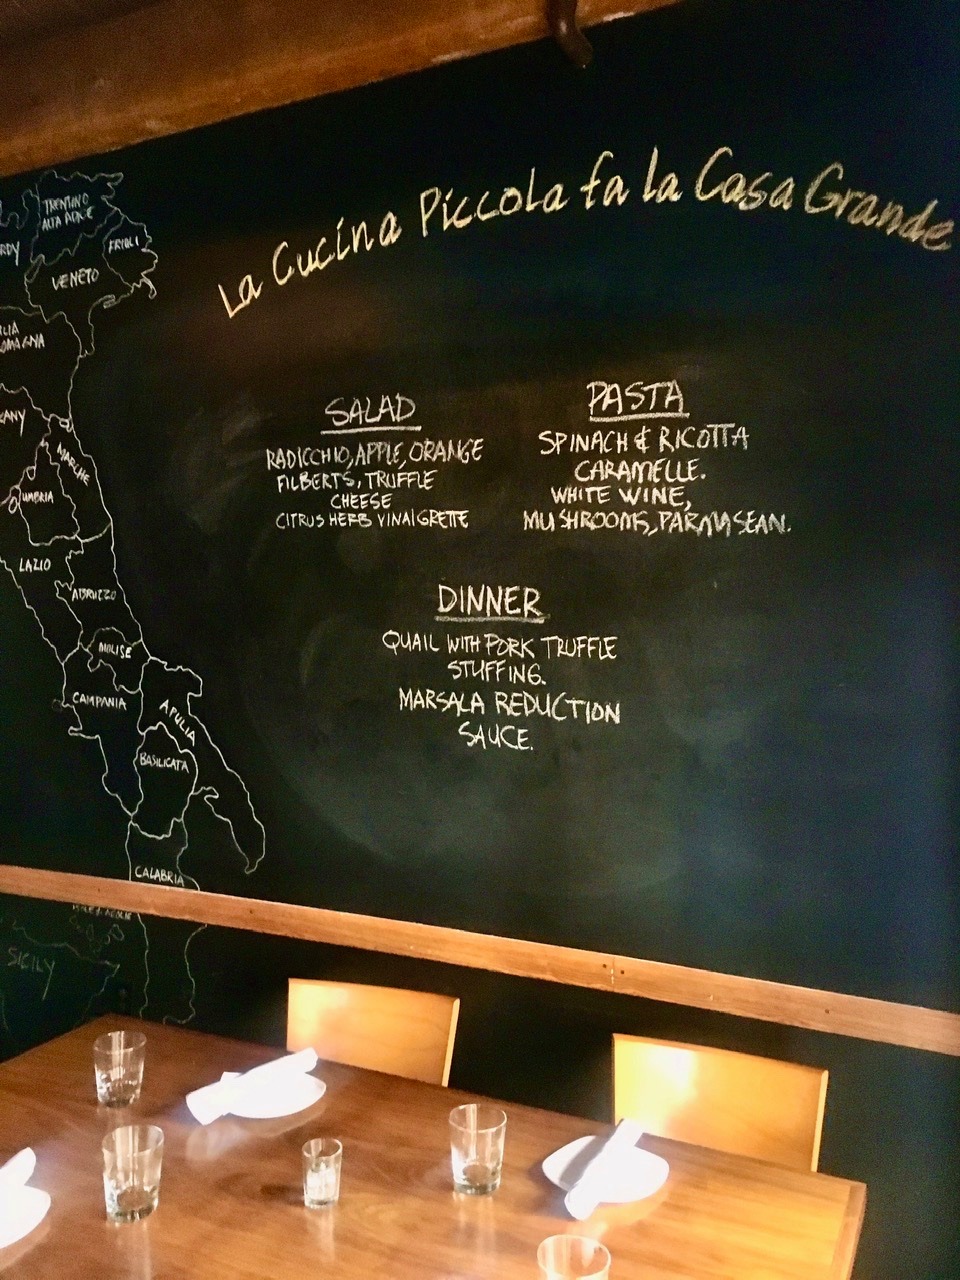 La Cucina Piccola fa la Casa Grande
SALAD
RADICCHIO, APPLE, ORANGE
FILBERTS, TRUFFLE
CHEESE
CITRUS HERB VINAIGRETTE
PASTA
SPINACH & RICOTTA
CARAMELLE.
WHITE WINE,
MUSHROOMS, PARMASEAN.
DINNER
QUAIL WITH PORK TRUFFLE
STUFFING.
MARSALA REDUCTION
SAUCE.
TRENTINO
ALTA ADIGE
RDY
FRIULI
VENETO
LIA
OMAGNA
CANY
MARCHE
UMBRIA
LAZIO
ABRUZZO
MOLISE
CAMPANIA
APULIA
BASILICATA
CALABRIA
SICILY